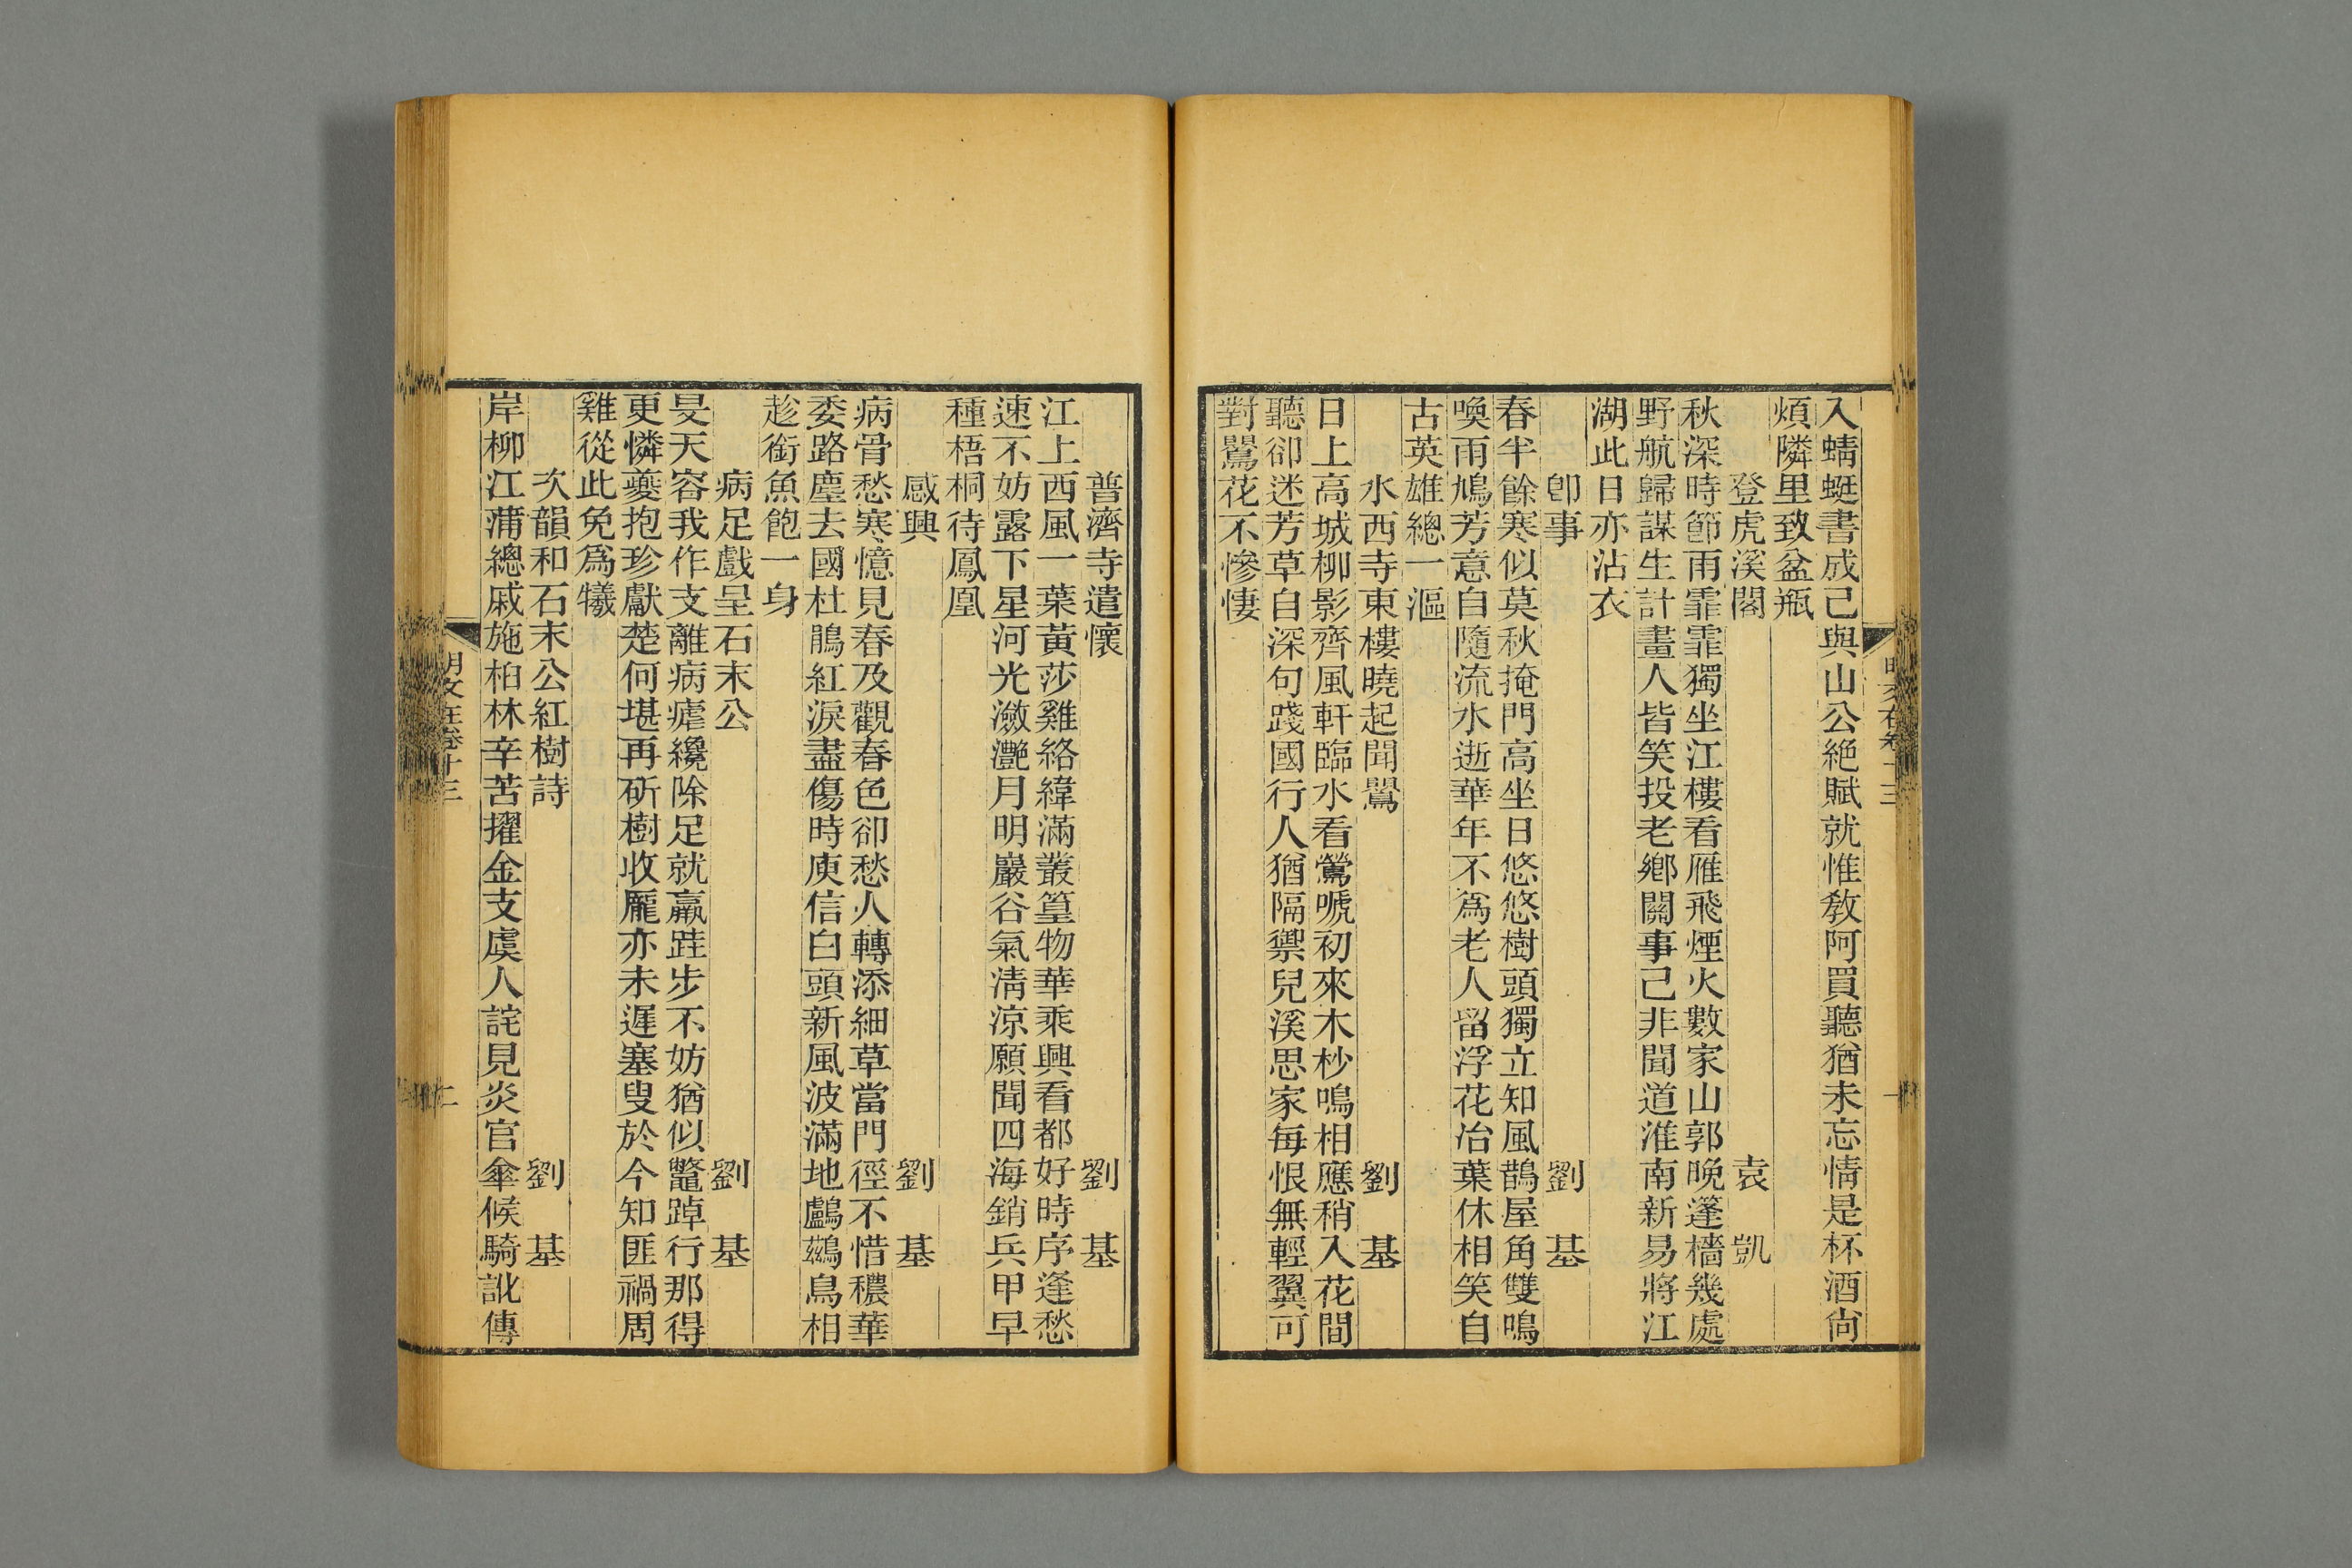 入蜻蜓書成己與山公絶賦就惟敎阿買聽猶未忘情是杯酒尙
煩隣里致盆瓶
登虎溪閣 袁凱
秋深時節雨霏霏獨坐江樓看雁飛煙火數家山郭晩篷檣幾處
野航歸謀生計畫人皆笑投老鄕關事己非聞道淮南新易將江
湖此日亦沾衣
卽事 劉基
春半餘寒似莫秋掩門高坐日悠悠樹頭獨立知風鵲屋角雙鳴
喚雨鳩芳意自隨流水逝華年不爲老人留浮花冶葉休相笑自
古英雄總一漚
水西寺東樓曉起聞鸎 劉基
日上高城柳影齊風軒臨水看鶯嗁初來木杪鳴相應稍入花間
聽卻迷芳草自深句踐國行人猶隔禦兒溪思家每恨無輕翼可
對鸎花不慘悽
普濟寺遣懷 劉基
江上西風一葉黃莎雞絡緯滿叢篁物華乘興看都好時序逢愁
速不妨露下星河光瀲灧月明巖谷氣淸涼願聞四海銷兵甲早
種梧桐待鳳凰
感興 劉基
病骨愁寒憶見春及觀春色卻愁人轉添細草當門徑不惜穠華
委路塵去國杜鵑紅淚盡傷時庾信白頭新風波滿地鸕鷀鳥相
趁銜魚飽一身
病足戲呈石末公 劉基
旻天容我作支離病瘧纔除足就羸跬步不妨猶似鼈踔行那得
更憐夔抱珍獻楚何堪再斫樹收龐亦未遲塞叟於今知匪禍周
雞從此免爲犧
次韻和石末公紅樹詩 劉基
岸柳江蒲總戚施桕林辛苦擢金支虞人詫見炎官傘候騎訛傳
明文在卷十三 二